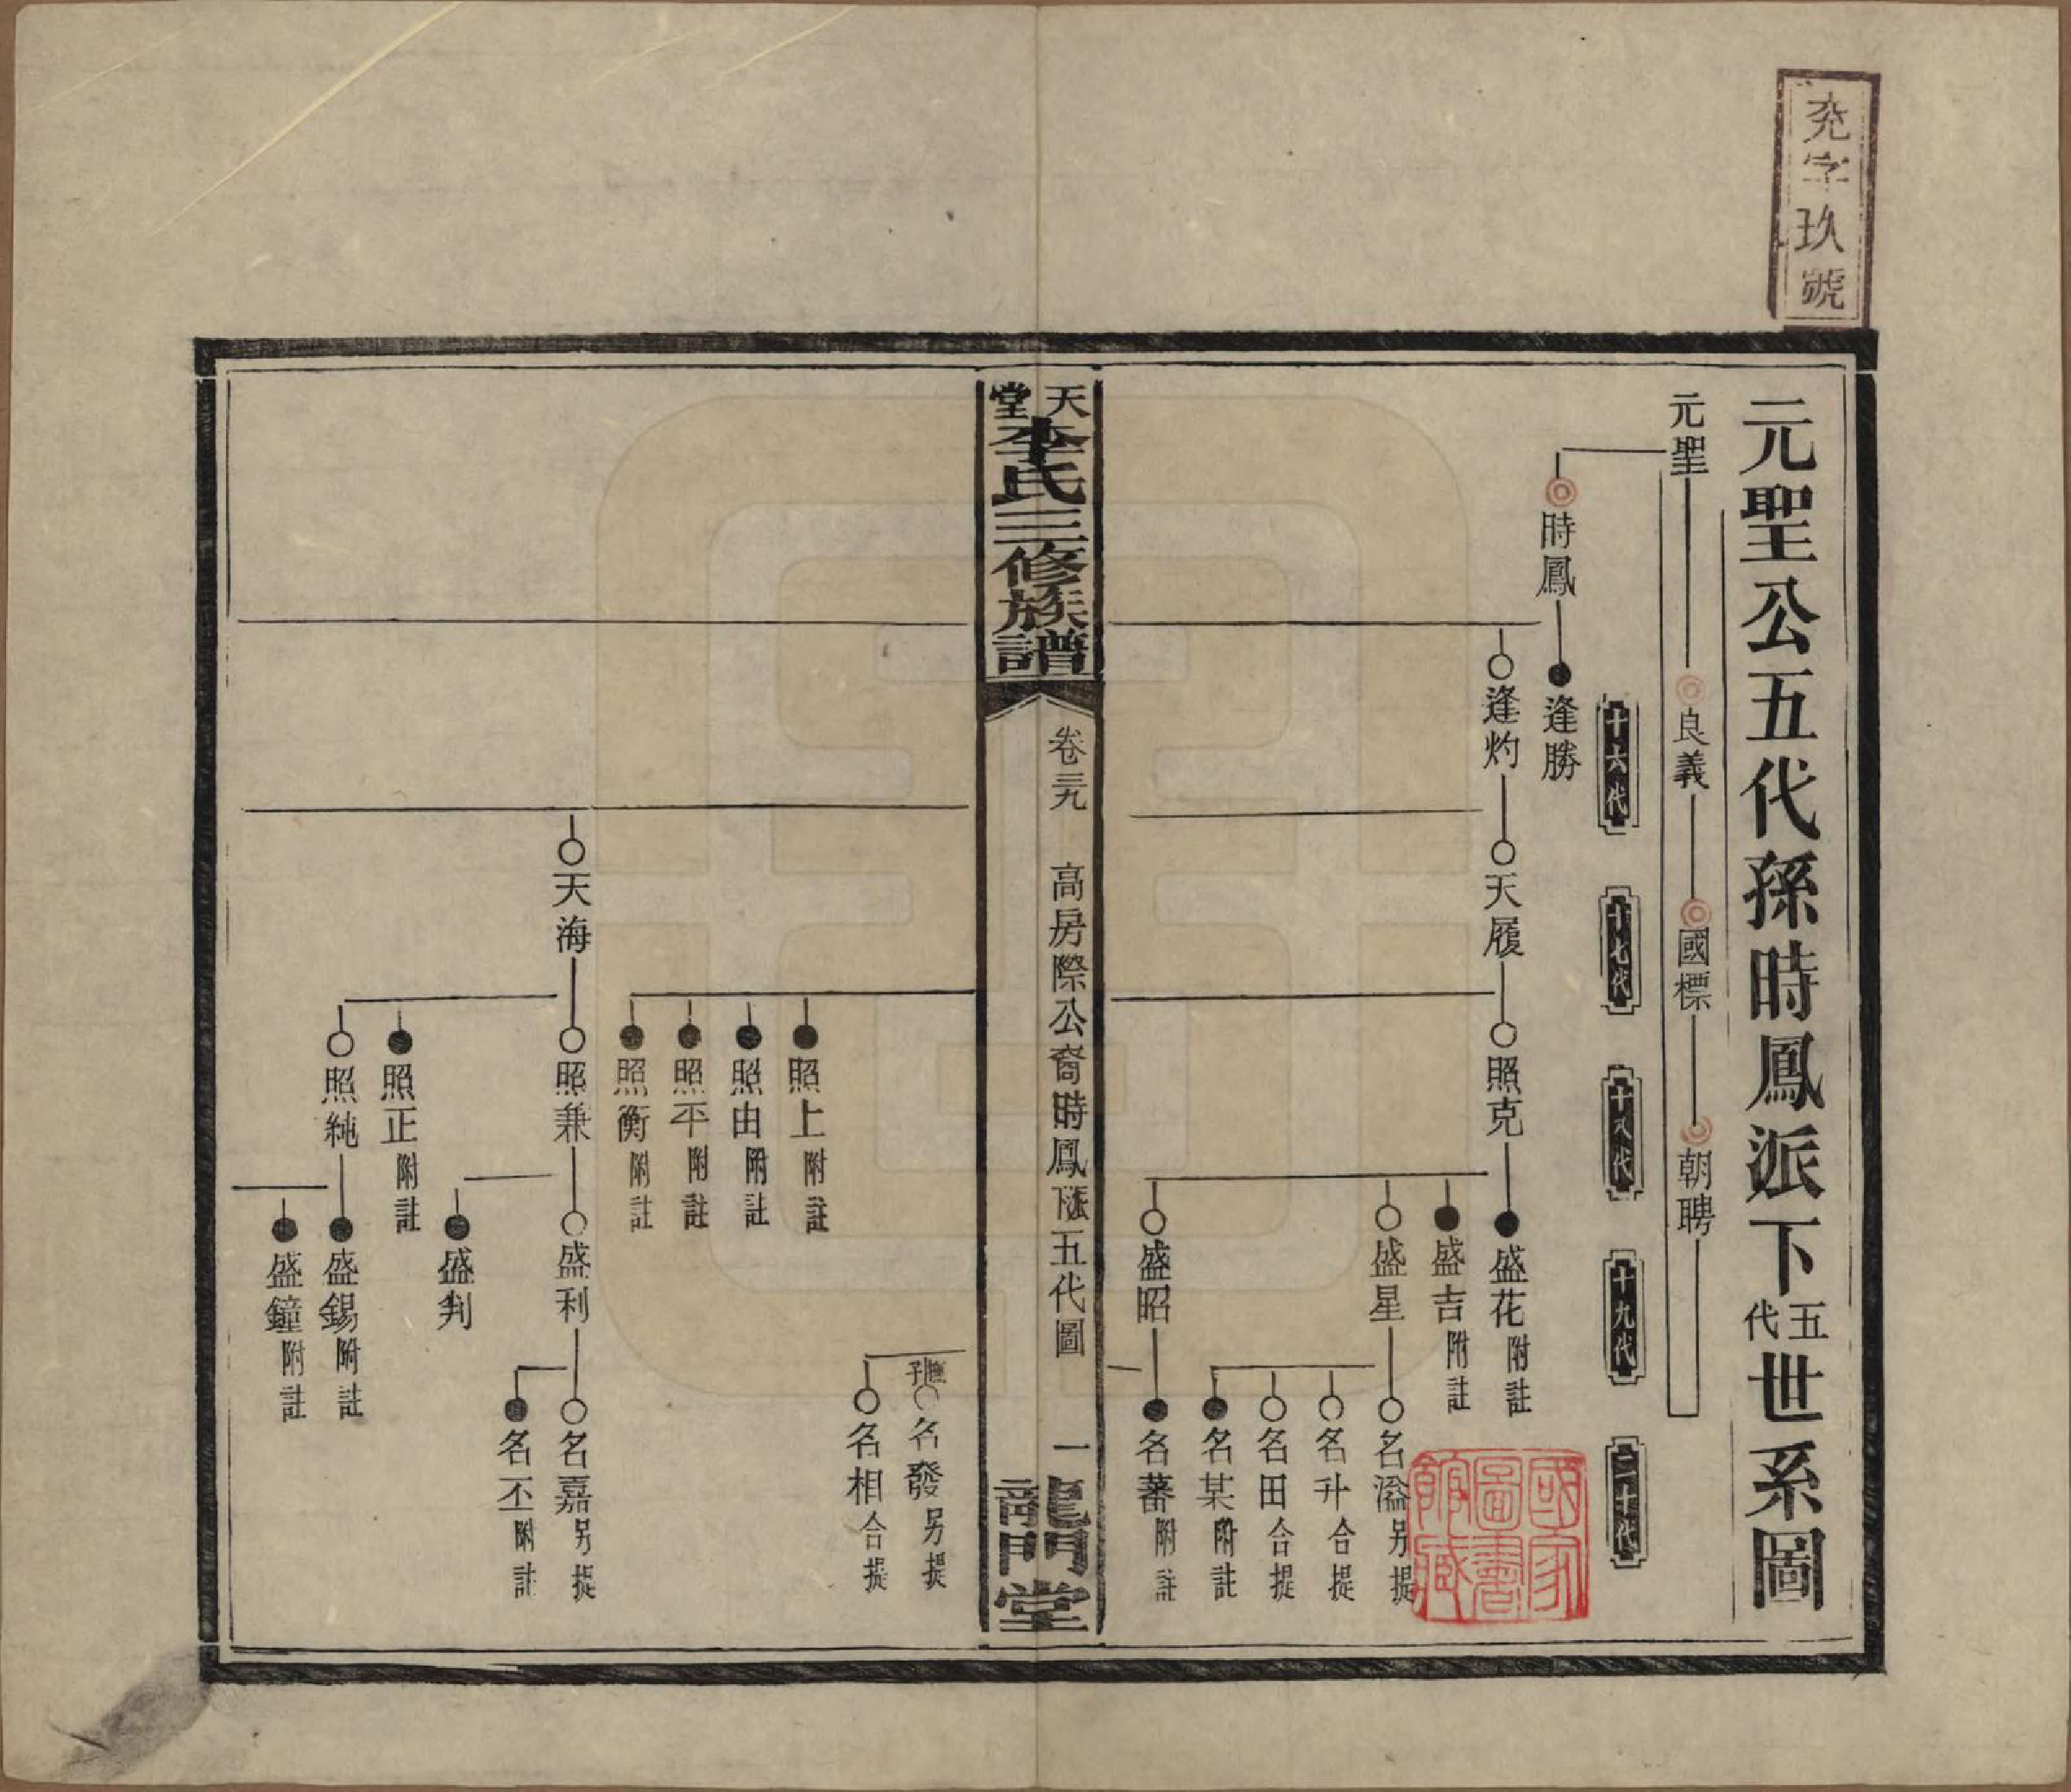 充字玖號
元聖公五代孫時鳳派下五代世系圖
元聖
良義
國標
朝聘
十六代
十七代
十八代
十九代
二十代
時鳳
逢勝
逢灼
天履
照克
盛花附註
盛吉附註
盛星
名溢另提
名升合提
名田合提
名某附註
盛昭
名蕃附註
天堂李氏三修族譜
卷三九
高房際公裔時鳳派五代圖
一
龍門堂
國家圖書館藏
名發另提
名相合提
照上附註
照由附註
照平附註
照衡附註
天海
照兼
盛利
名嘉另提
名丕附註
盛判
照正附註
照純
盛錫附註
盛鐘附註